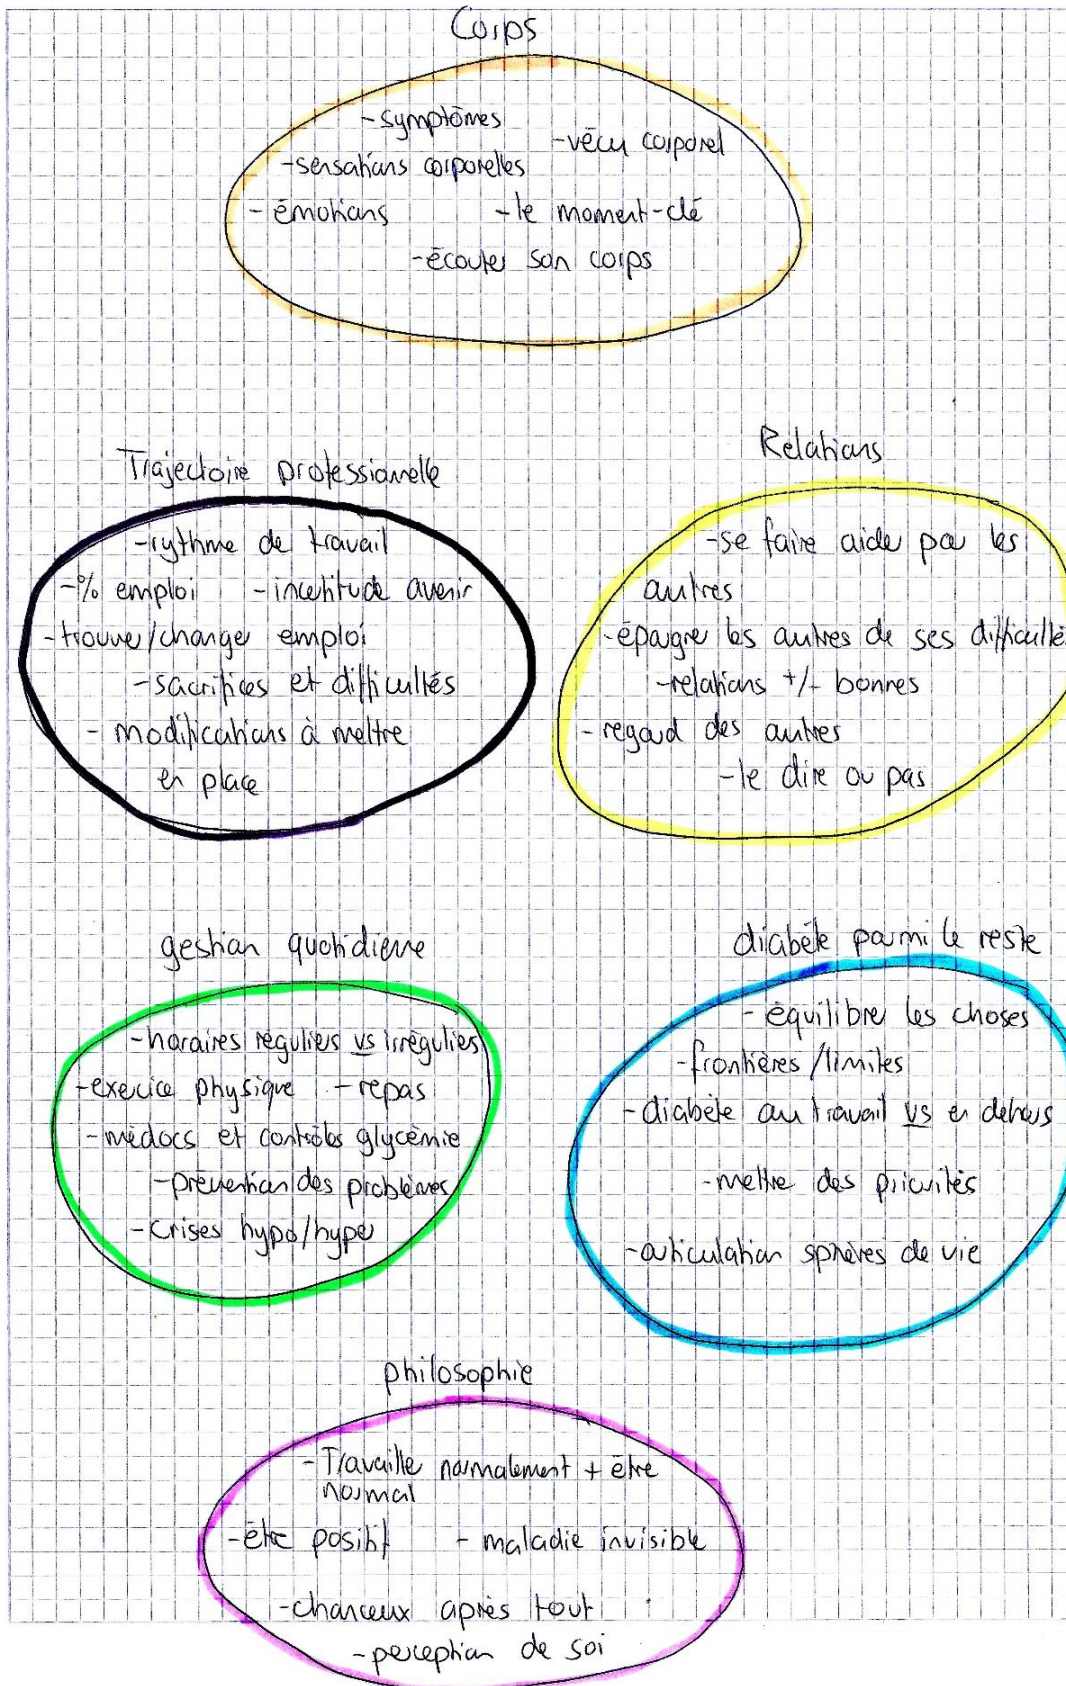 Corps
-symptômes
-vécu corporel
-sensations corporelles
-émotions
-le moment-clé
-écouter son corps
Trajectoire professionnelle
-rythme de travail
-% emploi
-incertitude avenir
-trouver/changer emploi
-sacrifices et difficultés
-modifications à mettre
en place
Relations
-se faire aider par les
autres
-épargner les autres de ses difficultés
-relations +/- bonnes
-regard des autres
-le dire ou pas
gestion quotidienne
-horaires réguliers vs irréguliers
-exercice physique
-repas
-médocs et contrôles glycémie
-prévention des problèmes
-crises hypo/hyper
diabète parmi le reste
-équilibrer les choses
-frontières/limites
-diabète au travail vs en dehors
-mettre des priorités
-articulation sphères de vie
philosophie
-Travailler normalement + être
normal
-être positif
-maladie invisible
-chanceux après tout
-perception de soi